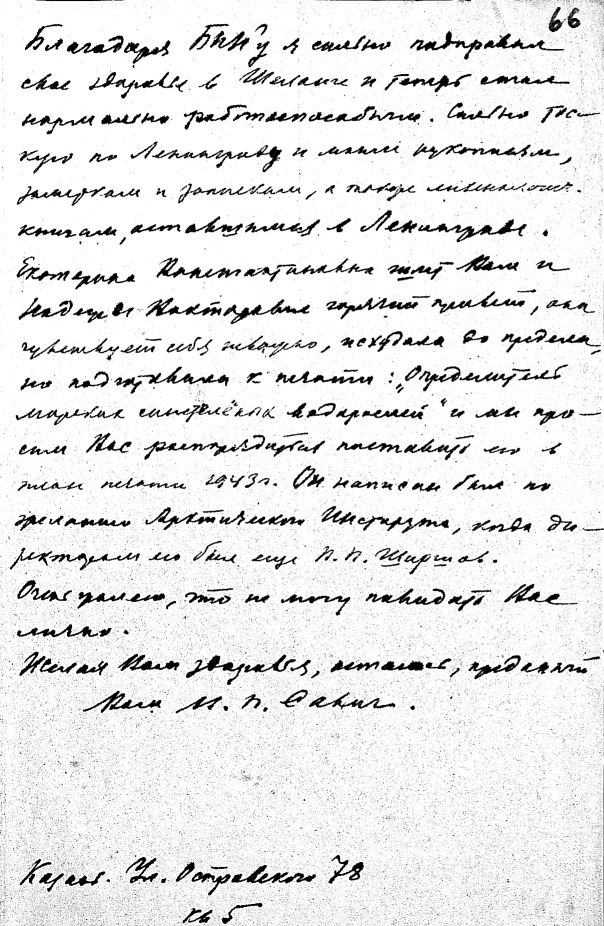 66
Благодаря БИН'у я сильно подправил
свое здоровье в Шеланге и теперь стал
нормально работоспособным. Сильно тос-
кую по Ленинграду и моим рукописям,
заметкам и запискам, а также
книгам, оставшимся в Ленинграде.
Екатерина Константиновна шлет Вам и
Надежде Викторовне горячий привет, она
чувствует себя неважно, исхудала до предела,
но подготовила к печати: „Определитель
морских синезелёных водорослей" и мы про-
сим Вас распорядиться поставить его в
план печати 1943 г. Он написан был по
желанию Арктического Института, когда ди-
ректором его был еще П. П. Ширшов.
Очень жалею, что не могу повидать Вас
лично.
Желая Вам здоровья, остаюсь, преданный
Вам В. П. Савич.
Казань. Ул. Островского 78
кв 5